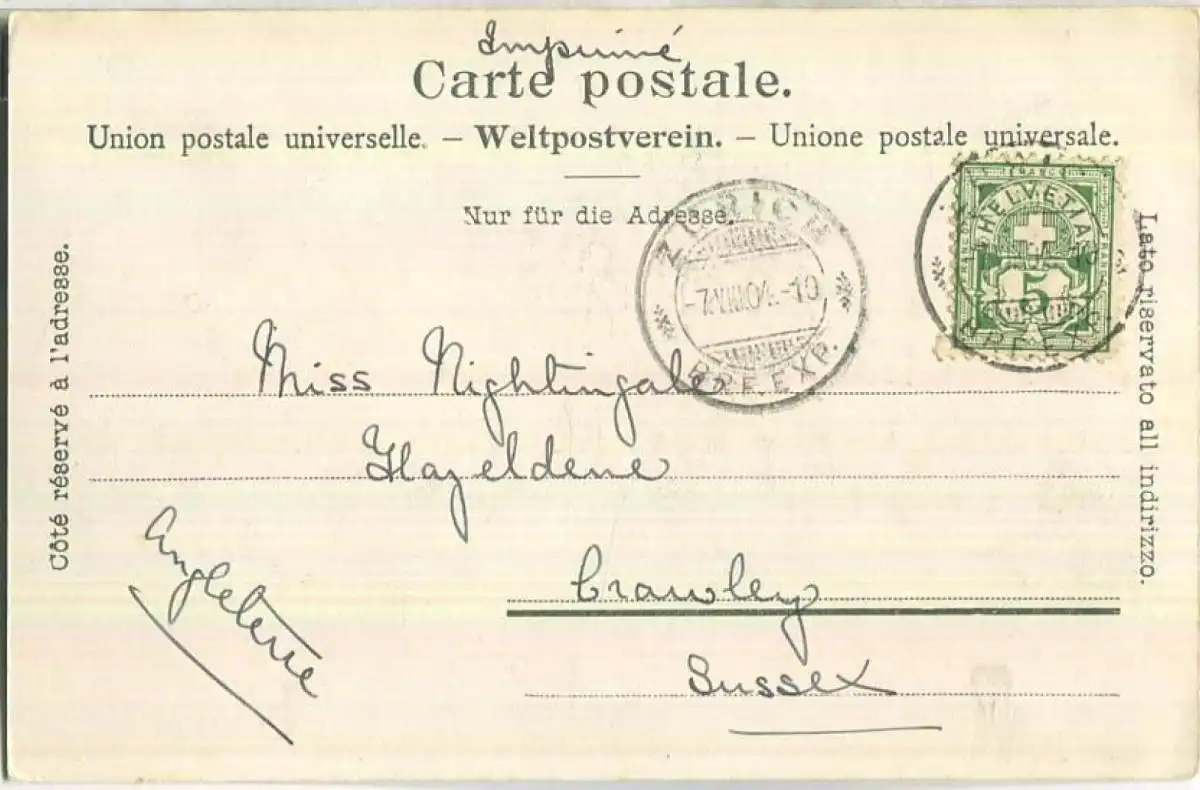 Imprimé
Carte postale.
Union postale universelle. – Weltpostverein. – Unione postale universale.
Nur für die Adresse.
Côté réservé à l'adresse.
Lato riservato all indirizzo.
ZÜRICH
-7.VIII.04.-10
BRF. EXP.
FRANCO
HELVETIA
5
BRF. EXP.
Miss Nightingale
Hazeldene
Crawley
Sussex
Angleterre